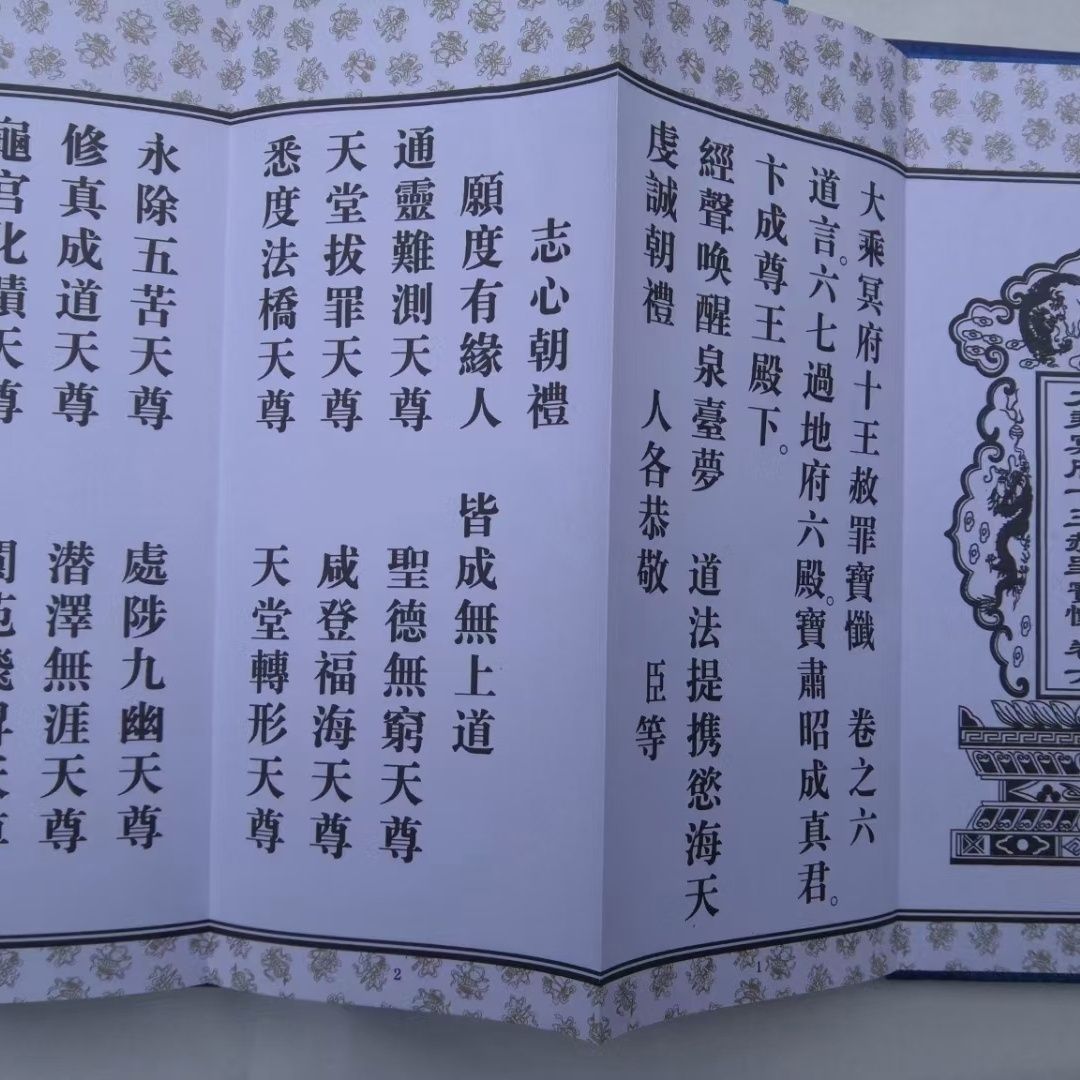 大乘冥府十王赦罪寶懺 卷之六
道言。六七過地府六殿。寶肅昭成真君。
卞成尊王殿下。
經聲喚醒泉臺夢 道法提携慾海天
虔誠朝禮 人各恭敬 臣等
志心朝禮
願度有緣人 皆成無上道
通靈難測天尊 聖德無窮天尊
天堂拔罪天尊 咸登福海天尊
悉度法橋天尊 天堂轉形天尊
永除五苦天尊 處陟九幽天尊
修真成道天尊 潛澤無涯天尊
宮化 天尊 苑
1
2